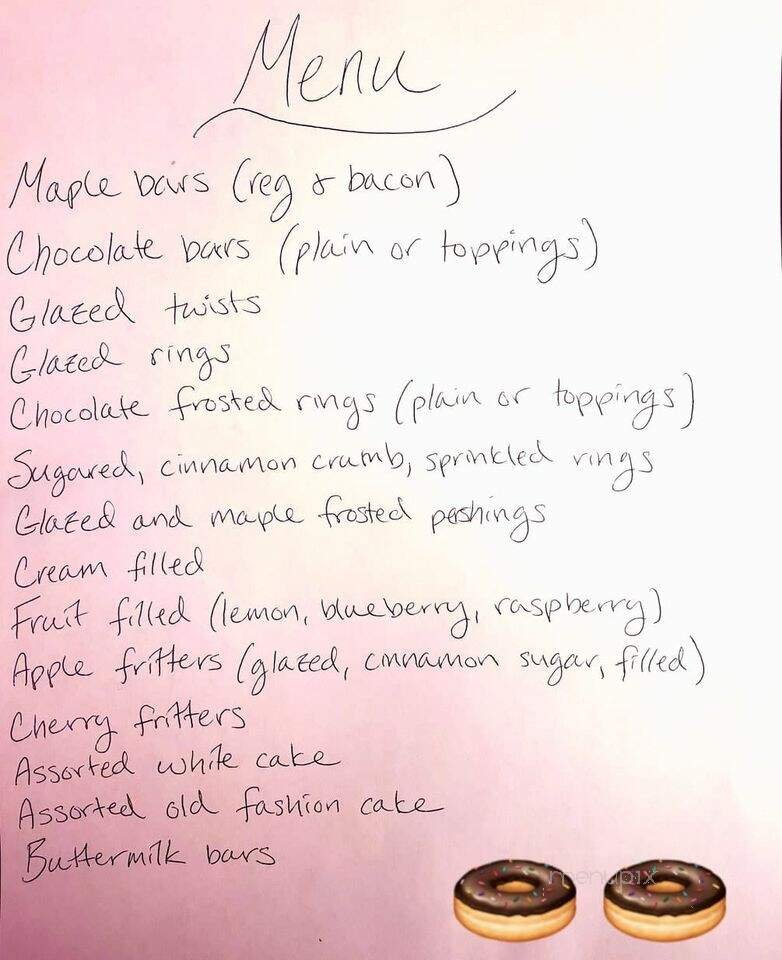 Menu
Maple bars (reg & bacon)
Chocolate bars (plain or toppings)
Glazed twists
Glazed rings
Chocolate frosted rings (plain or toppings)
Sugared, cinnamon crumb, sprinkled rings
Glazed and maple frosted pershings
Cream filled
Fruit filled (lemon, blueberry, raspberry)
Apple fritters (glazed, cinnamon sugar, filled)
Cherry fritters
Assorted white cake
Assorted old fashion cake
Buttermilk bars
menupix